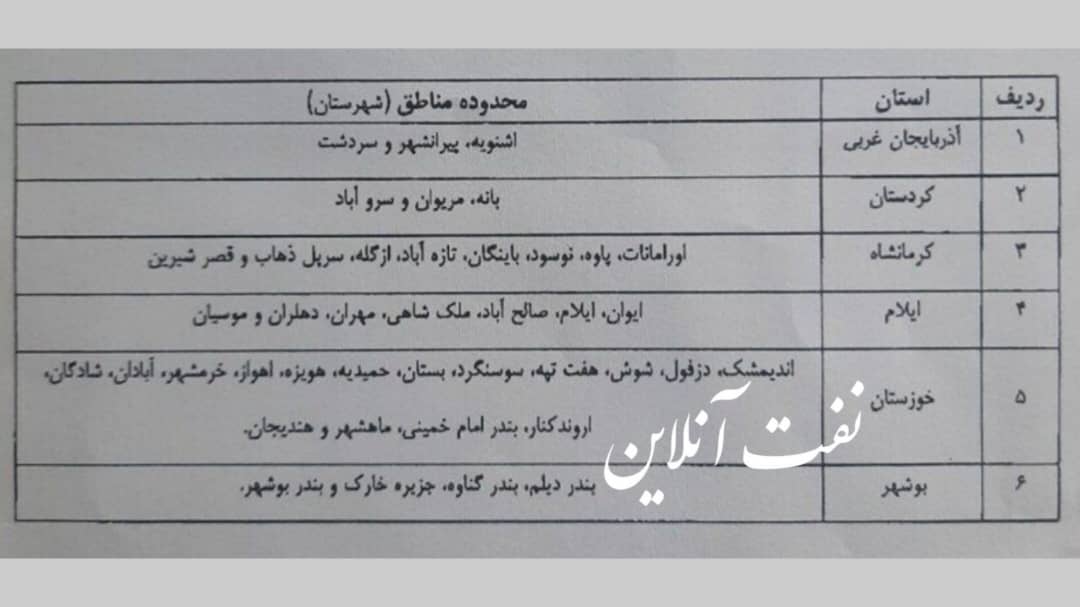 ردیف استان محدوده مناطق (شهرستان)
۱ آذربایجان غربی اشنویه، پیرانشهر و سردشت
۲ کردستان بانه، مریوان و سرو آباد
۳ کرمانشاه اورامانات، پاوه، نوسود، باینگان، تازه آباد، ازگله، سرپل ذهاب و قصر شیرین
۴ ایلام ایوان، ایلام، صالح آباد، ملک شاهی، مهران، دهلران و موسیان
۵ خوزستان اندیمشک، دزفول، شوش، هفت تپه، سوسنگرد، بستان، حمیدیه، هویزه، اهواز، خرمشهر، آبادان، شادگان،
اروندکنار، بندر امام خمینی، ماهشهر و هندیجان.
نفت آنلاین
۶ بوشهر بندر دیلم، بندر گناوه، جزیره خارک و بندر بوشهر.